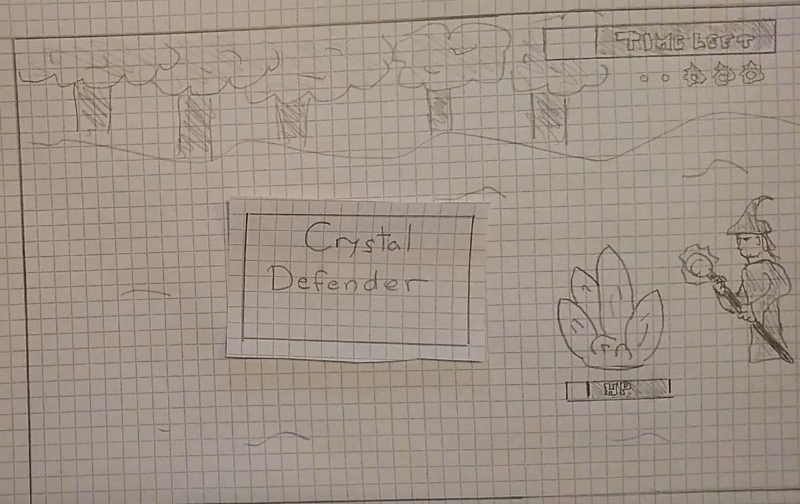 TIME LEFT
Crystal
Defender
HP